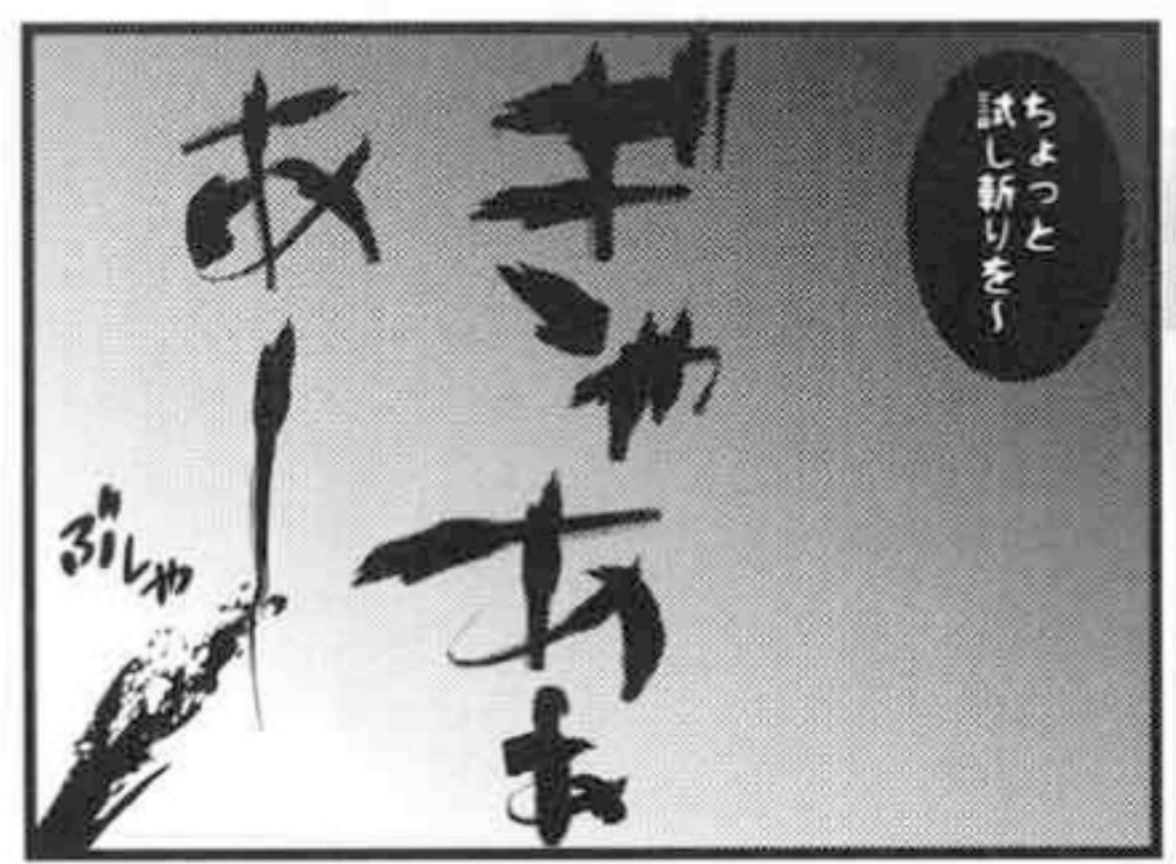 ちょっと
試し斬りを～
ぎゃあぁ
あー
ぶしゃ